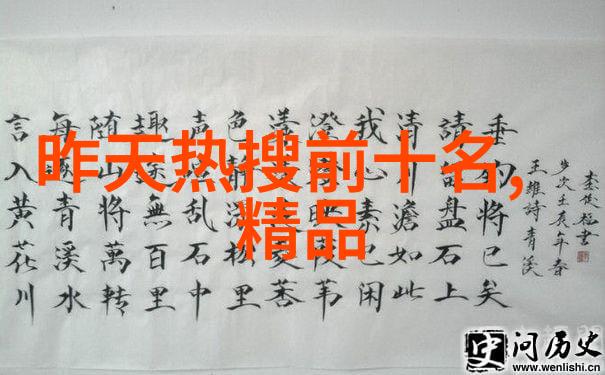 昨天热搜前十名,
精品
言入黄花川
每逐青溪水
随山將萬转
趣途無百里
声喧乱石中
色静深松里
漾漾泛菱荇
澄澄映葭苇
我心素已闲
清川澹如此
請留盤石上
垂钓将已矣
王維詩青溪
問历史
www.wenlishi.cn